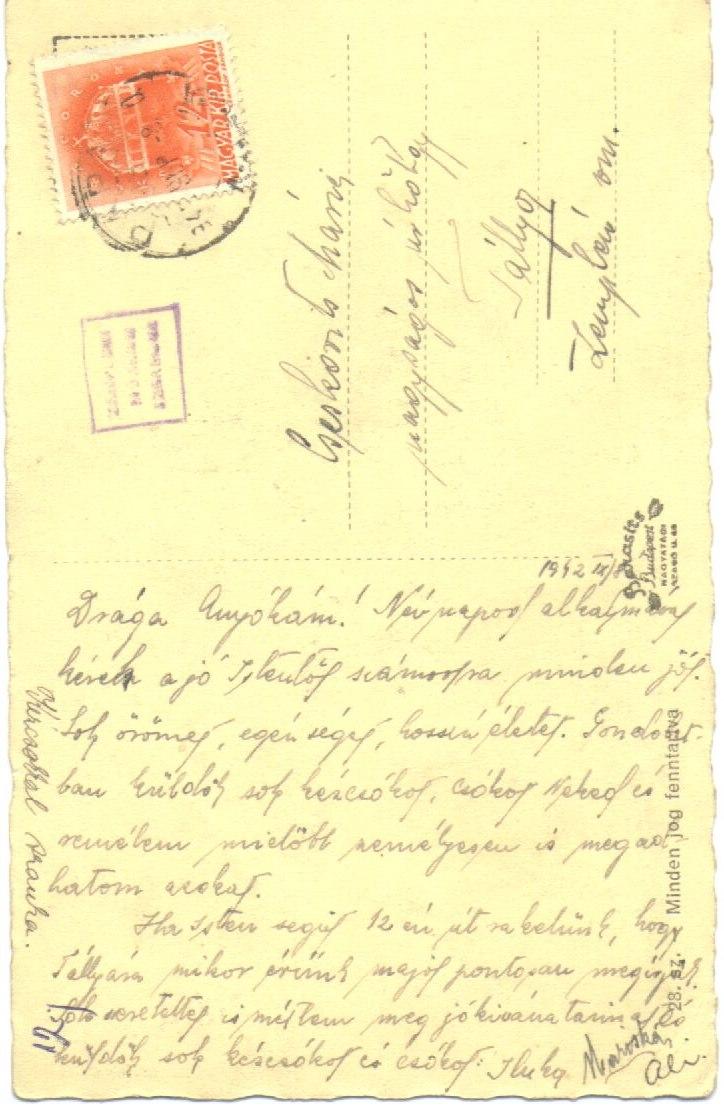 MAGYAR KIR. POSTA
Mária
nagyságos úrhölgy
Tállya
Zemplén vm.
Barasits
Budapest
NAGYATÁDI
SZABÓ U.
1942 IX/8
Drága Anyókám! Névnapod alkalmával
kérek a jó Istentől számodra minden jót.
Sok örömet, egészséget, hosszú életet. Gondolat-
ban küldök sok kézcsókot, csókot Neked és
remélem mielőbb személyesen is megad-
hatom azokat.
Ha Isten segít 12 én útra kelünk, hogy
Tállyára mikor érünk majd pontosan megírjuk.
Sok szeretettel ismétlem meg jókívánataimat és
küldök sok kézcsókot és csókot: Iluka
Ali.
Kézcsókkal Aranka.
28. sz. Minden jog fenntartva